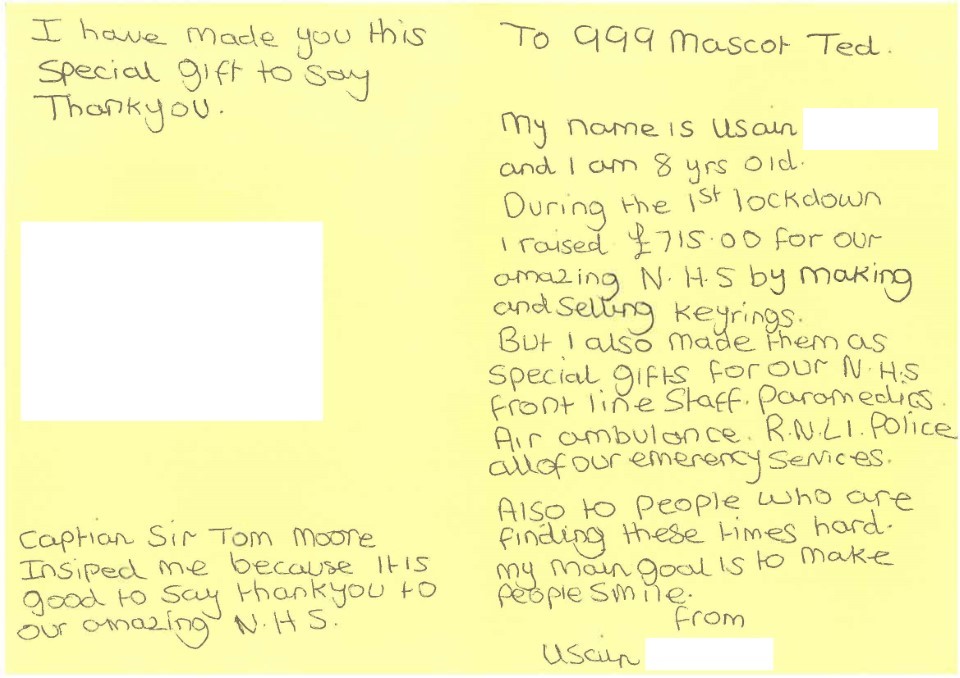 I have made you this
special gift to say
Thankyou.
Captian Sir Tom Moore
Insiped me because it is
good to say thankyou to
our amazing N.H.S.
To 999 Mascot Ted.
My name is Usain
and I am 8 yrs old.
During the 1st lockdown
I raised £715.00 for our
amazing N.H.S by making
and selling keyrings.
But I also made them as
special gifts for our N.H.S
front line Staff. Paramedics.
Air ambulance. R.N.L.I. Police
all of our emerency services.
Also to people who are
finding these times hard.
my main goal is to make
people smile.
from
Usain